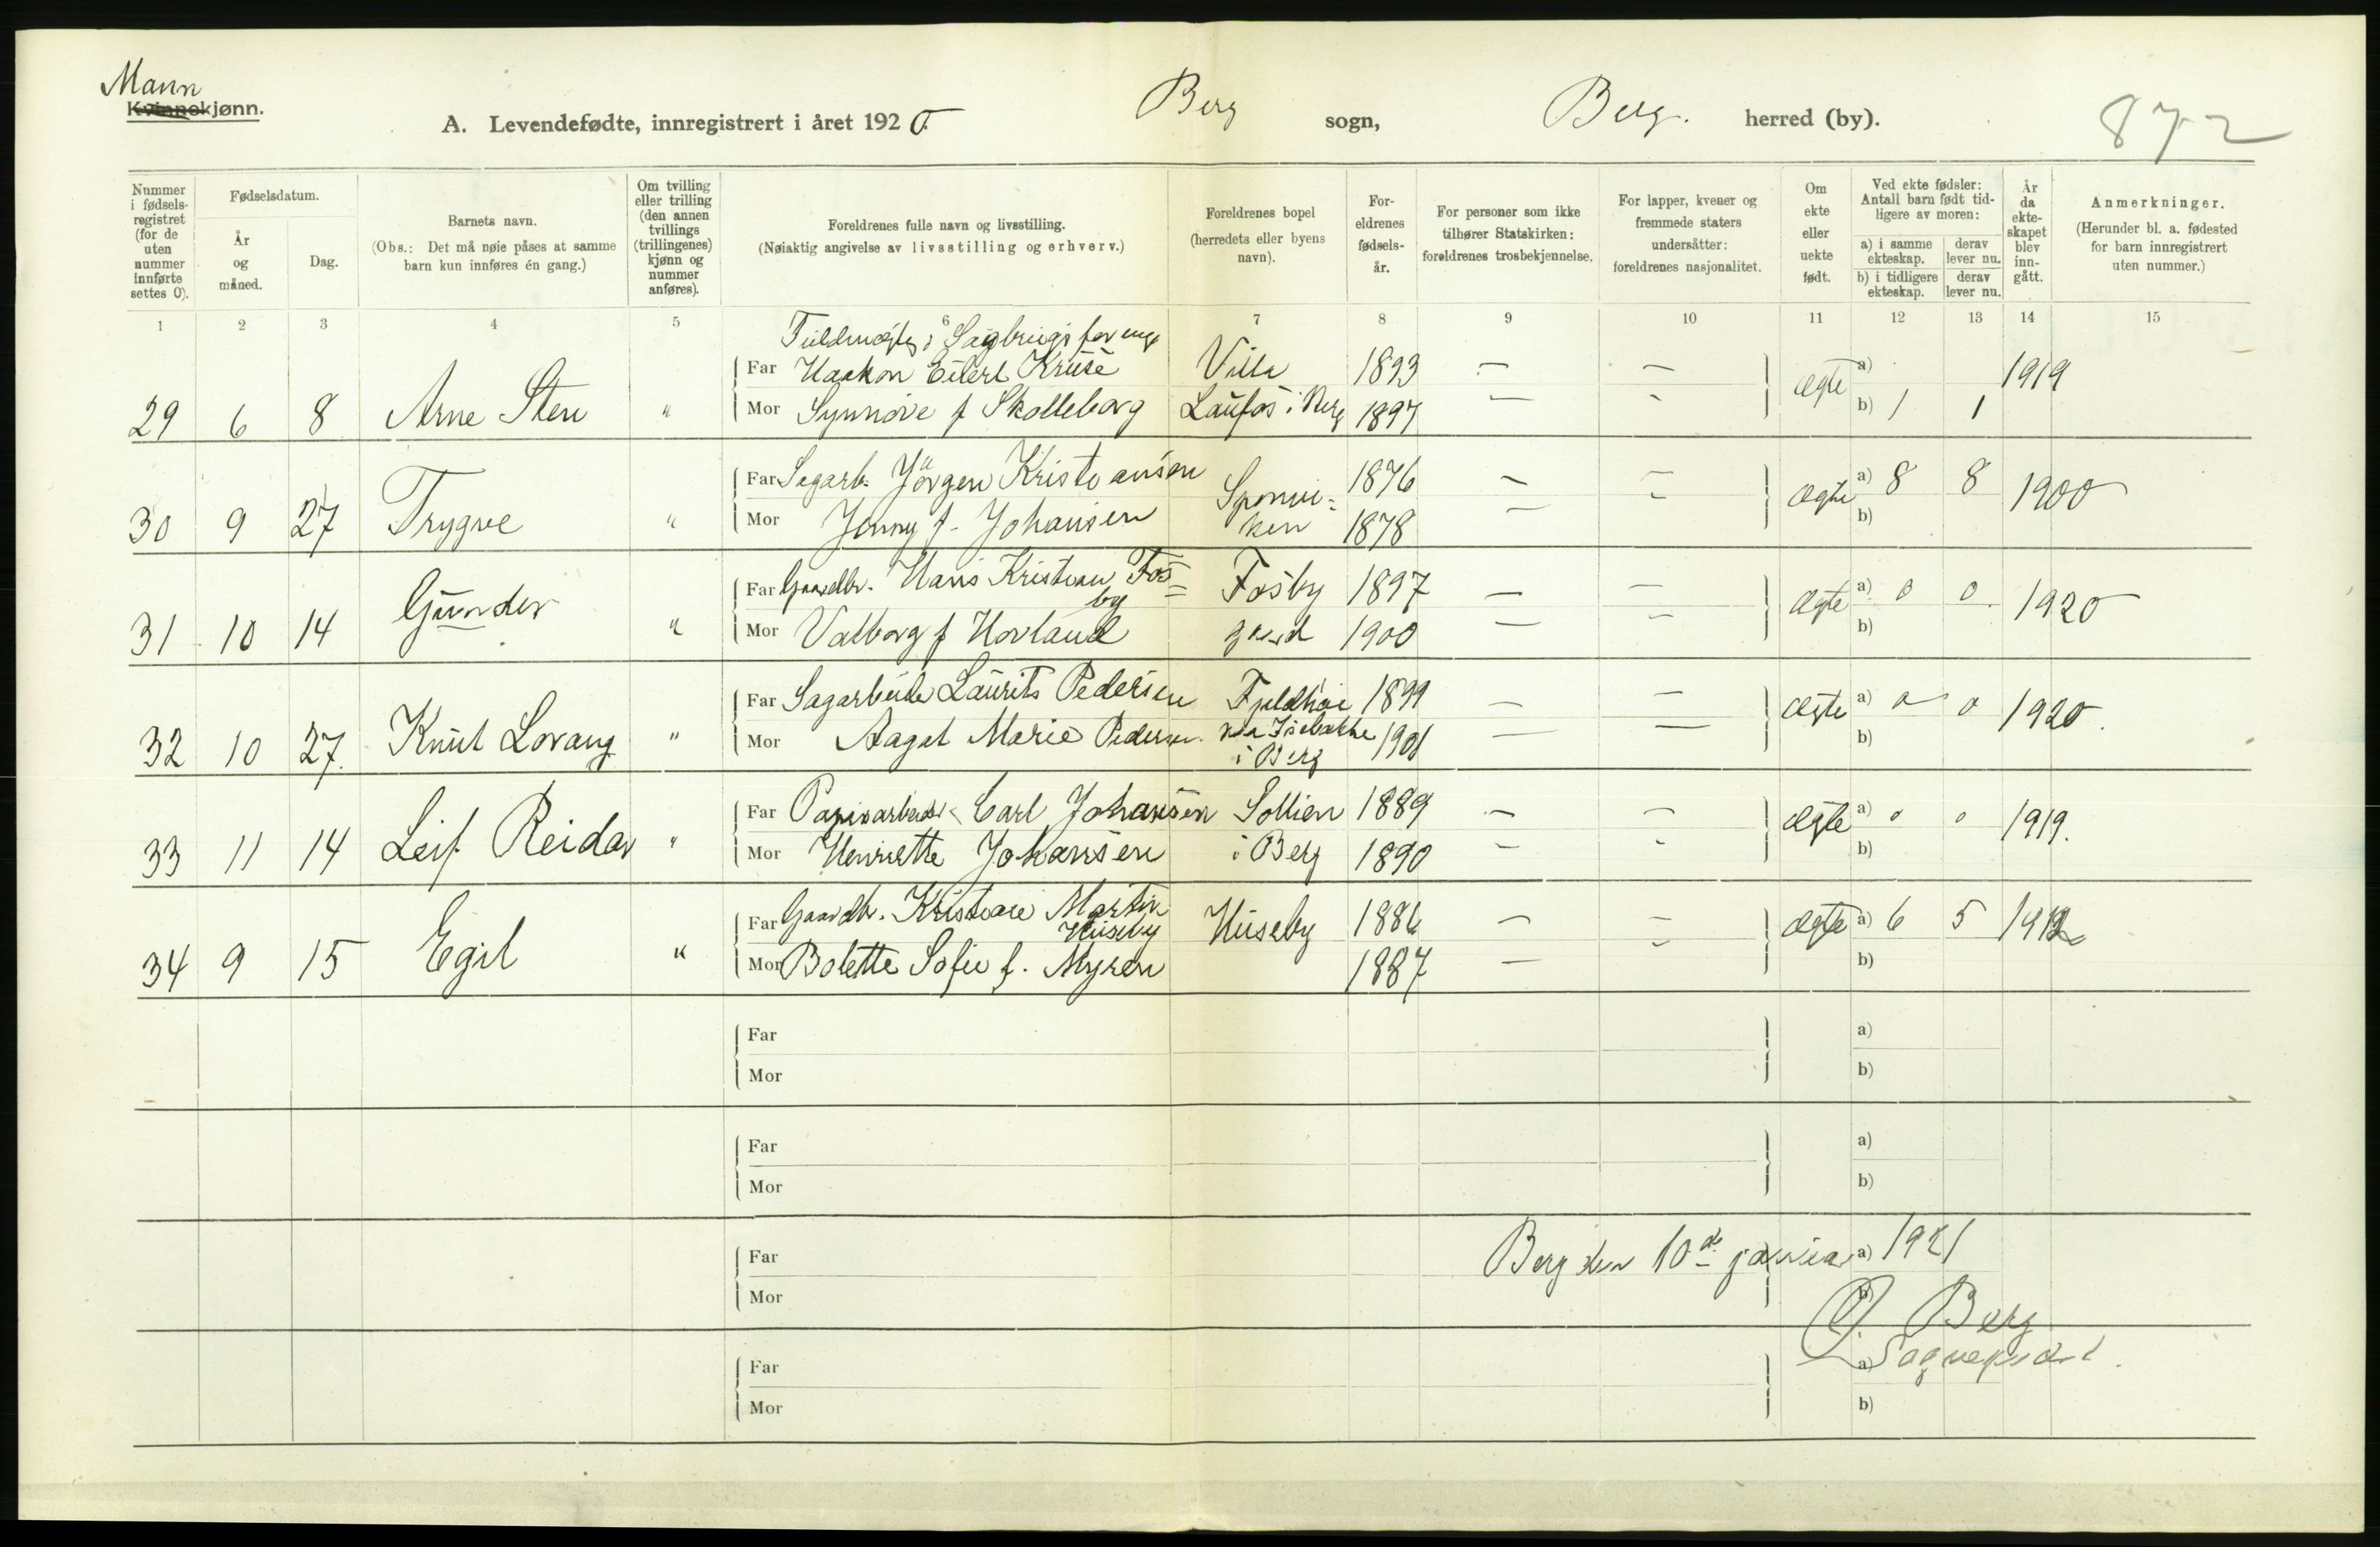 Mann
Kvinnekjønn.
A. Levendefødte, innregistrert i året 1920. Berg sogn, Berg. herred (by).
872
Nummer i fødselsregistret (for de uten nummer innførte settes 0).
Fødselsdatum.
År og måned.
Dag.
Barnets navn.
(Obs.: Det må nøie påses at samme barn kun innføres én gang.)
Om tvilling eller trilling (den annen tvillings (trillingenes) kjønn og nummer anføres).
Foreldrenes fulle navn og livsstilling.
(Nøiaktig angivelse av livsstilling og erhverv.)
Foreldrenes bopel (herredets eller byens navn).
Foreldrenes fødselsår.
For personer som ikke tilhører Statskirken: foreldrenes trosbekjennelse.
For lapper, kvener og fremmede staters undersåtter: foreldrenes nasjonalitet.
Om ekte eller uekte født.
Ved ekte fødsler: Antall barn født tidligere av moren:
a) i samme ekteskap. derav lever nu.
b) i tidligere ekteskap. derav lever nu.
År da ekteskapet blev inngått.
Anmerkninger.
(Herunder bl. a. fødested for barn innregistrert uten nummer.)
1 2 3 4 5 6 7 8 9 10 11 12 13 14 15
Far Haakon Eilert Kruse Villa 1893 — — a) 1919
29 6 8 Arne Sten " Mor Synnöve f Skolleborg Laufos i Berg 1897 — - Ægte b) 1 1
Far Sagarb. Jörgen Kristiansen Sponvi- 1876 — — a) 8 8 1900
30 9 27 Trygve " Mor Jenny f. Johansen ken 1878 — - Ægte b)
Far Gaardbr. Hans Kristian Fos= Fosby 1897 — — a) 0 0 1920
by
31 10 14 Gunder " Mor Valborg f Hovland gaard 1900 — — Ægte b)
Far Sagarbeider Laurits Pedersen Fjeldhöi 1899 — — a) 0 0 1920.
32 10 27. Knut Lovang " Mor Aagot Marie Pedersen. via Isebakke 1901 — — Ægte b)
i Berg
Far Papirarbeider Carl Johansen Sollien 1889 — — a) 0 0 1919.
33 11 14 Leif Reidar " Mor Henriette Johansen i Berg 1890 — - Ægte b)
Far Gaardbr. Kristian Martin Huseby 1886 — — a) 6 5 1912
Huseby
34 9 15 Egil " Mor Bolette Sofie f. Myren 1887 — - Ægte b)
Far a)
Mor b)
Far a)
Mor b)
Far Berg den 10de januar a) 1921
Mor b)
O. Berg
Far a) Sogneprest.
Mor b)